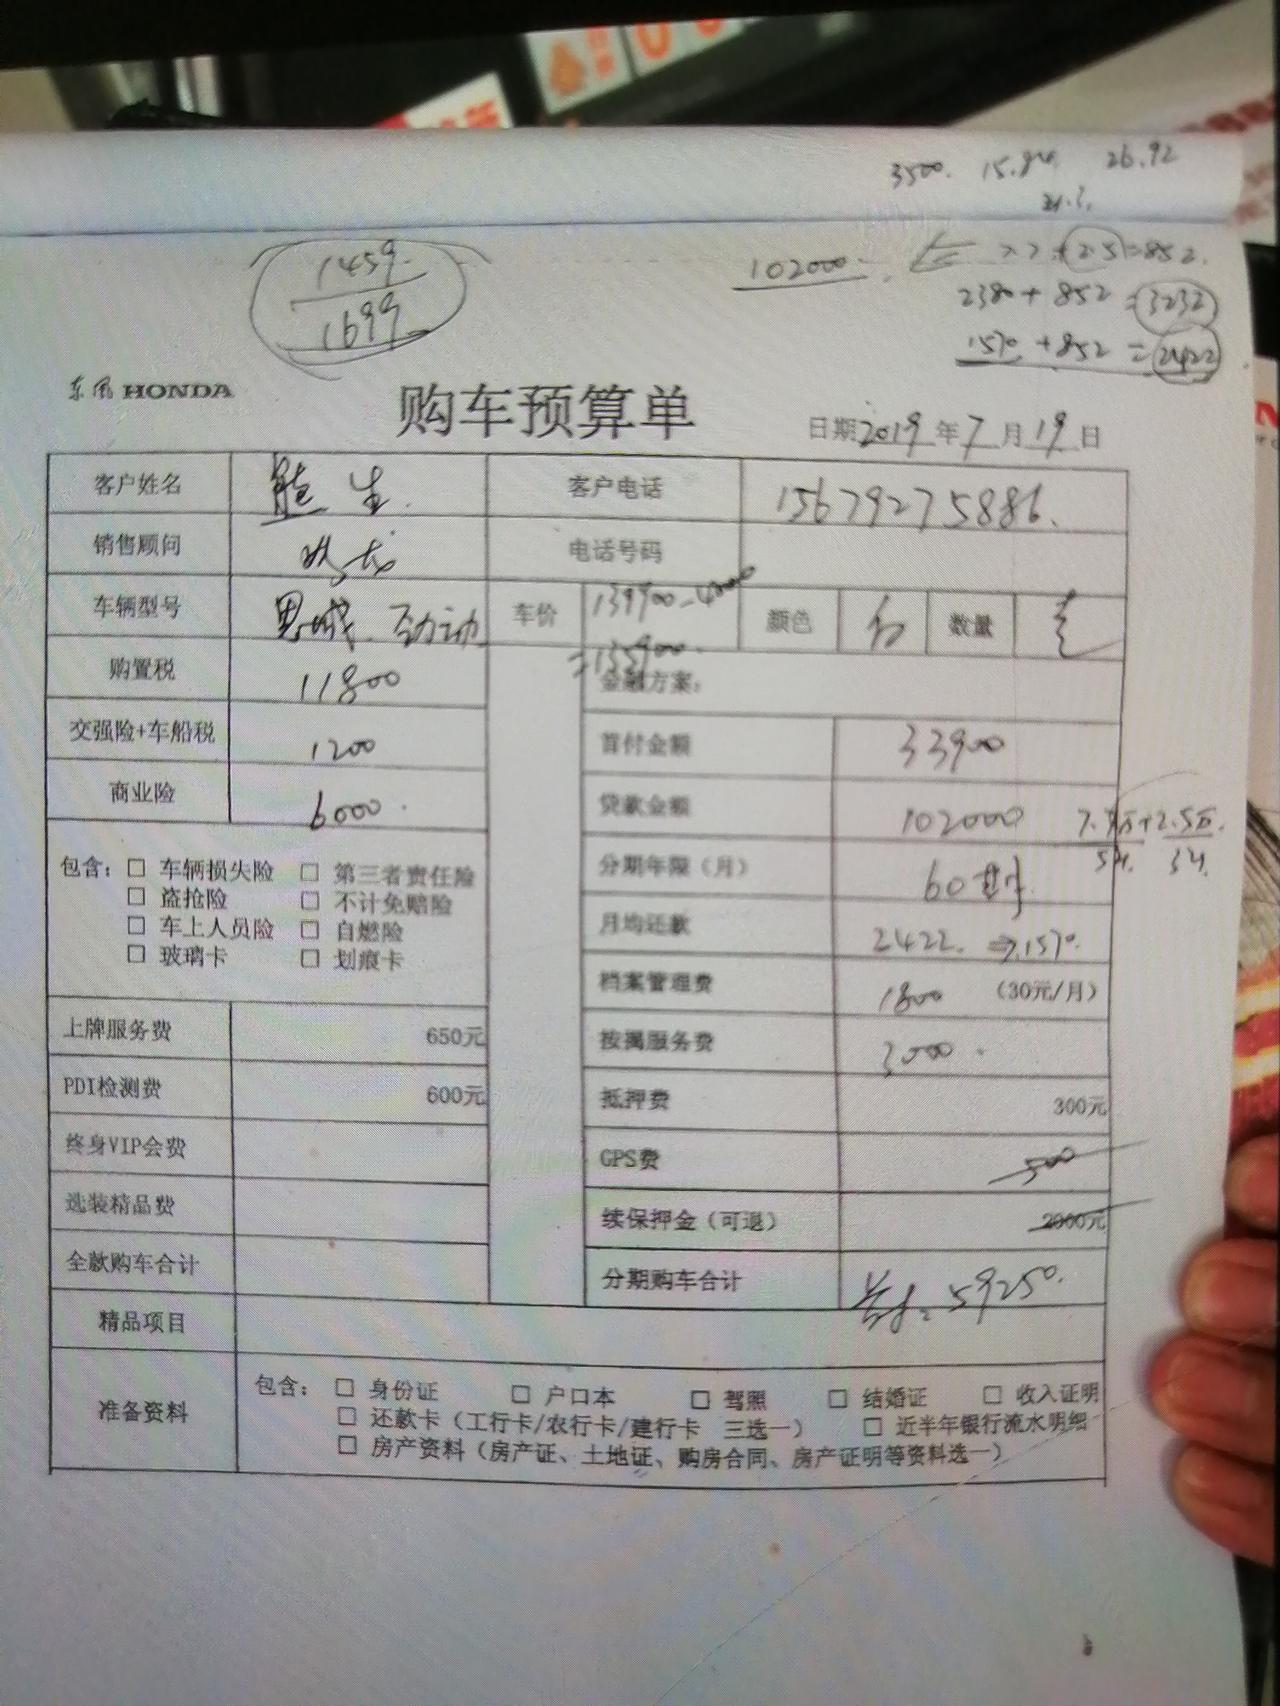 3500. 15.8 26.92
21.3.
1459.
1699
102000 7.7+2.5=852.
2380+852=3232
1570+852=2422
东风HONDA
购车预算单
日期2019年7月19日
客户姓名 熊生. 客户电话 15679275886.
销售顾问 电话号码
车辆型号 思域 劲动 车价 139900-4000 颜色 数量 壹
=135900.
购置税 11800 金融方案:
交强险+车船税 1200 首付金额 33900
商业险 6000. 贷款金额 102000 7.7万+2.5万.
5年. 3年.
包含: □ 车辆损失险 □ 第三者责任险 分期年限(月) 60期
□ 盗抢险 □ 不计免赔险
□ 车上人员险 □ 自燃险 月均还款 2422. ⇒1570.
□ 玻璃卡 □ 划痕卡
档案管理费 1800 (30元/月)
上牌服务费 650元 按揭服务费 3000.
PDI检测费 600元 抵押费 300元
终身VIP会费 GPS费 500
选装精品费 续保押金(可退) 2000元
全款购车合计 分期购车合计 首付: 59250.
精品项目
准备资料 包含: □ 身份证 □ 户口本 □ 驾照 □ 结婚证 □ 收入证明
□ 还款卡(工行卡/农行卡/建行卡 三选一) □ 近半年银行流水明细
□ 房产资料(房产证、土地证、购房合同、房产证明等资料选一)